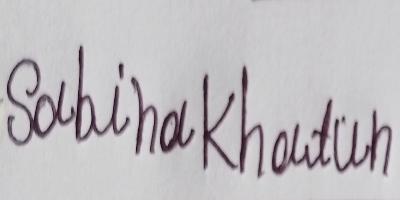 Sabina Khatun